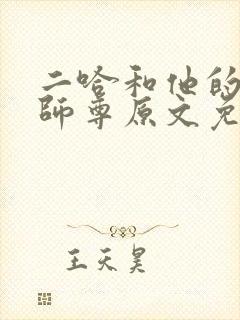 二哈和他的
師尊原文免
王天昊